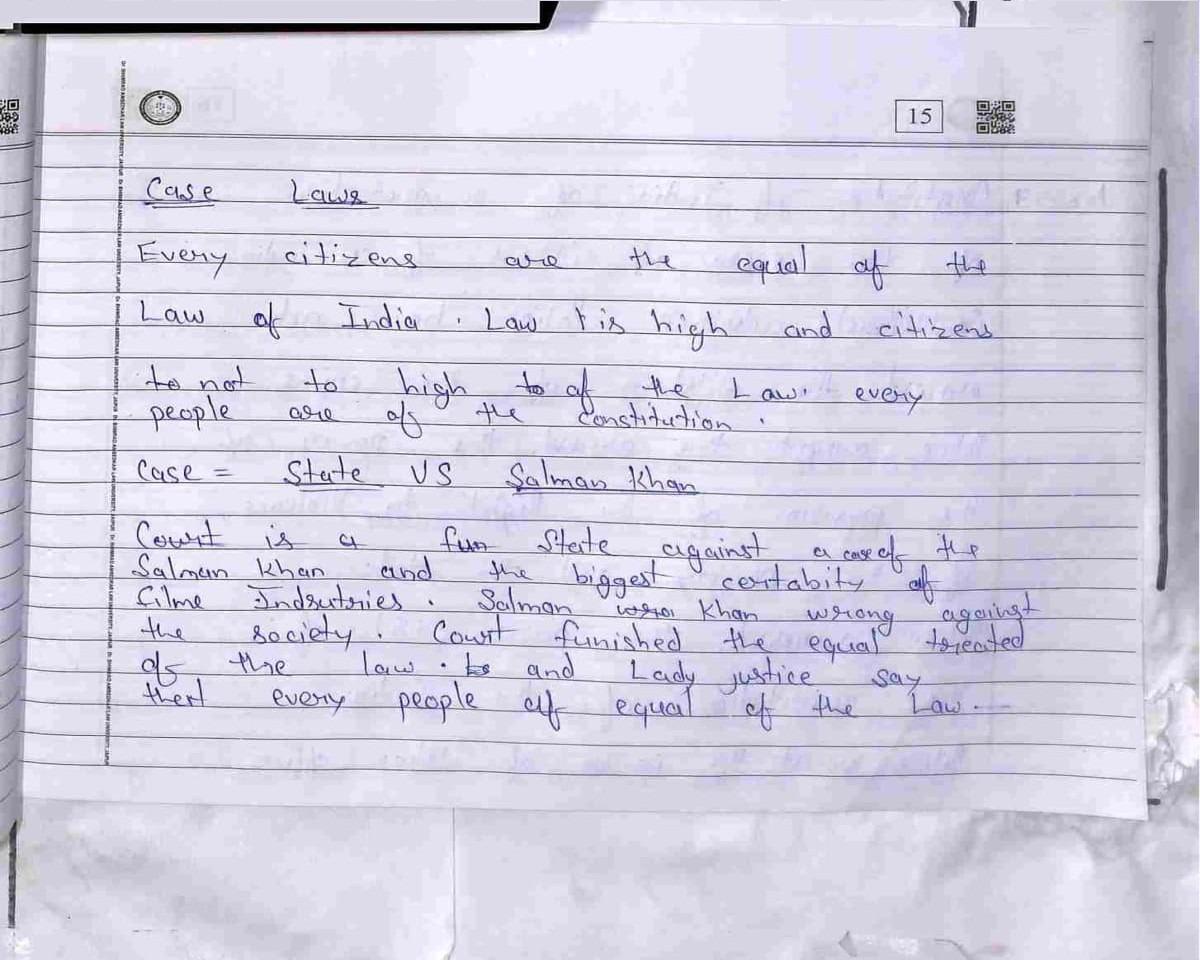 15
Case Laws
Every citizens are the equal of the
Law of India. Law is high and citizens
to not to high to of the Law. every
people are of the constitution.
Case = State VS Salman Khan
Court is a fun State against a case of the
Salman Khan and the biggest ceritabity of
filme Indsutries. Salman Khan wrong against
the society. Court funished the equal treated
of the law. and Lady justice say
thert every people of equal of the Law.